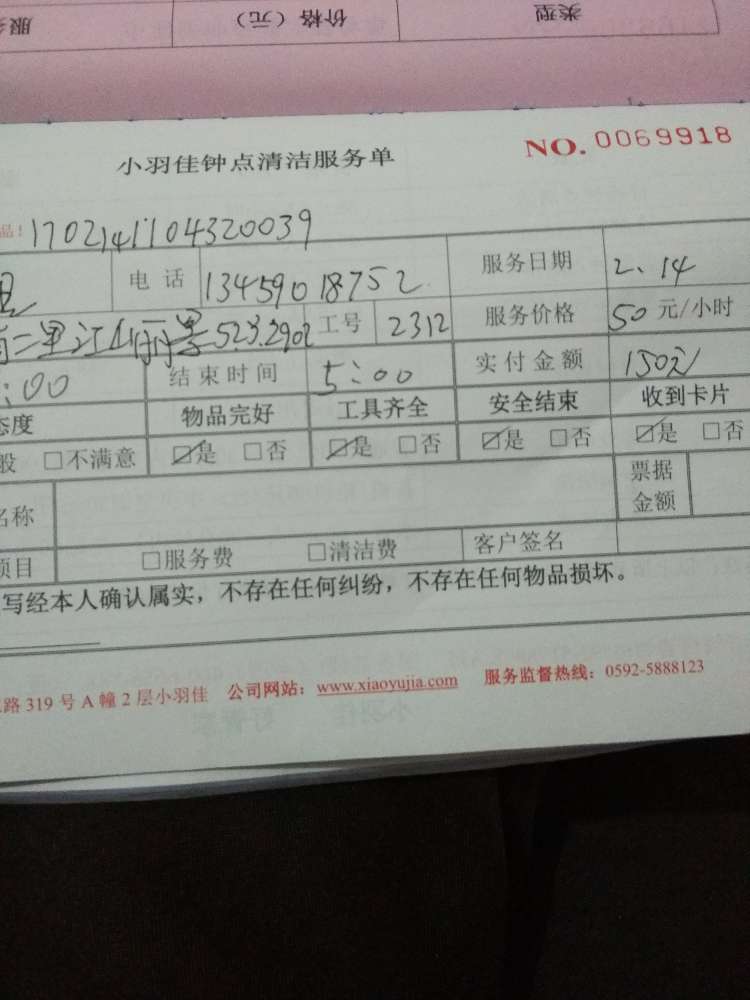 类型 价格（元） 服
小羽佳钟点清洁服务单 NO. 0069918
品！1702141104320039
电话 13459018752 服务日期 2.14
二里江山丽景523.2902 工号 2312 服务价格 50元/小时
:00 结束时间 5:00 实付金额 150元
态度 物品完好 工具齐全 安全结束 收到卡片
般 □不满意 ☑是 □否 ☑是 □否 ☑是 □否 ☑是 □否
名称 票据金额
项目 □服务费 □清洁费 客户签名
写经本人确认属实，不存在任何纠纷，不存在任何物品损坏。
路319号A幢2层小羽佳 公司网站：www.xiaoyujia.com 服务监督热线：0592-5888123